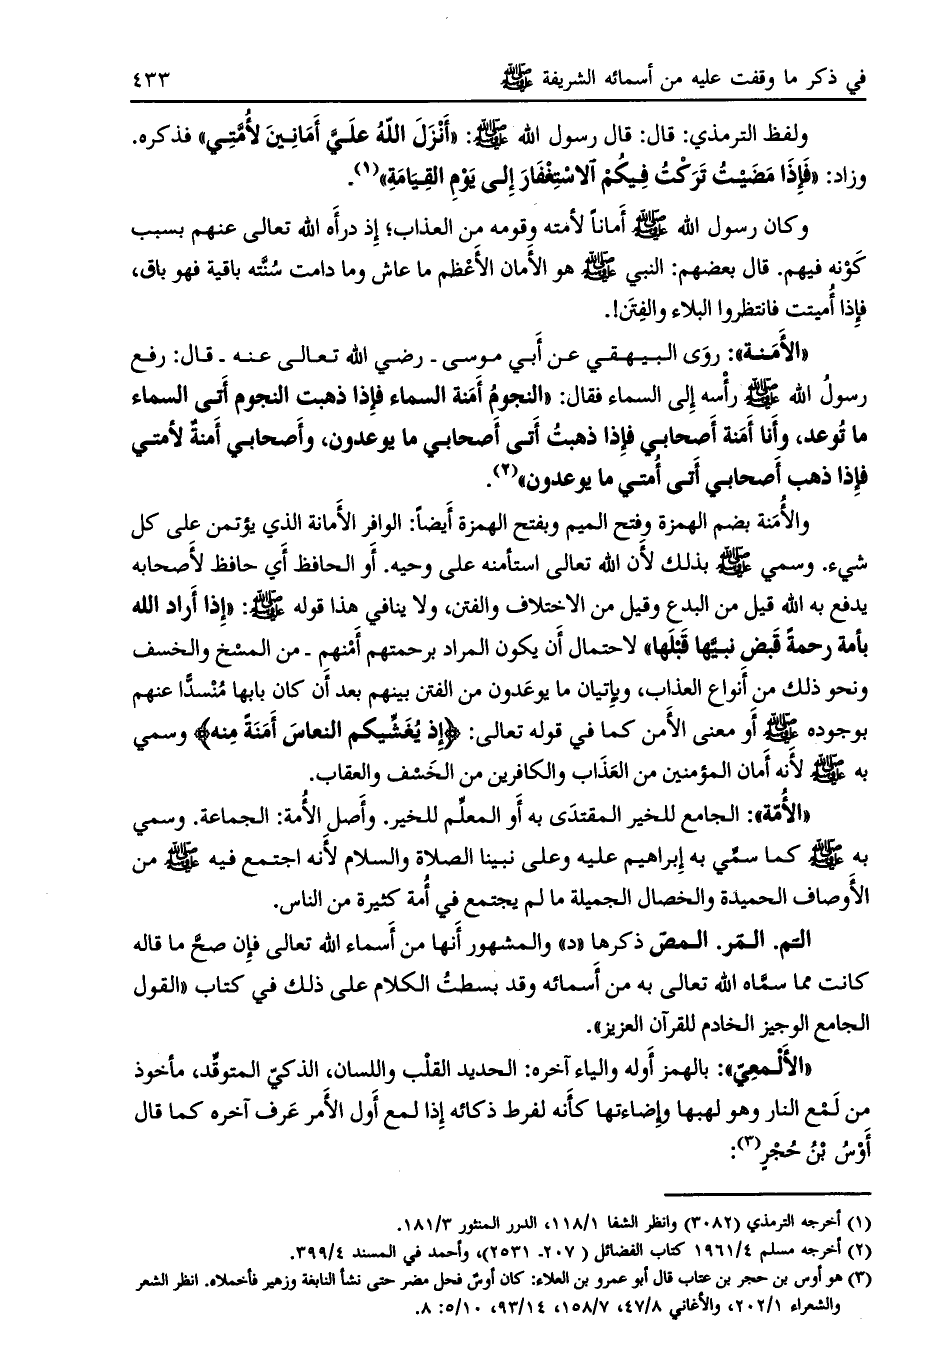 في ذكر ما وقفت عليه من أسمائه الشريفة ﷺ ٤٣٣
ولفظ الترمذي: قال: قال رسول الله ﷺ: «أَنْزَلَ اللّهُ علَيَّ أَمَانِينَ لأُمَّتِي» فذكره.
وزاد: «فَإِذَا مَضَيْتُ تَرَكْتُ فِيكُمْ ٱلاسْتِغْفَارَ إِلى يَوْمِ القِيَامَةِ»(١).
وكان رسول الله ﷺ أَماناً لأمته وقومه من العذاب؛ إذ درأَه الله تعالى عنهم بسبب
كَوْنه فيهم. قال بعضهم: النبي ﷺ هو الأَمان الأَعْظم ما عاش وما دامت سُنَّته باقية فهو باق،
فإذا أُميتت فانتظروا البلاء والفِتَن!.
«الأَمَنة»: روَى البيهقي عن أَبي موسى ـ رضي الله تعالى عنه ـ قال: رفع
رسولُ الله ﷺ رأْسه إلى السماء فقال: «النجومُ أَمَنة السماء فإذا ذهبت النجوم أَتى السماء
ما تُوعد، وأَنا أَمَنة أَصحابي فإذا ذهبتُ أَتى أَصحابي ما يوعدون، وأَصحابي أَمنةٌ لأمتي
فإذا ذهب أَصحابي أَتى أُمتي ما يوعدون»(٢).
والأُمَنة بضم الهمزة وفتح الميم وبفتح الهمزة أَيضاً: الوافر الأمانة الذي يؤتمن على كل
شيء. وسمي ﷺ بذلك لأن الله تعالى استأمنه على وحيه. أو الحافظ أي حافظ لأَصحابه
يدفع به الله قيل من البدع وقيل من الاختلاف والفتن، ولا ينافي هذا قوله ﷺ: «إذا أَراد الله
بأمة رحمةً قَبَض نبيَّها قَبْلَها» لاحتمال أَن يكون المراد برحمتهم أَمْنهم ـ من المسْخ والخسف
ونحو ذلك من أَنواع العذاب، وبإتيان ما يوعَدون من الفتن بينهم بعد أَن كان بابها مُنْسدًّا عنهم
بوجوده ﷺ أَو معنى الأَمن كما في قوله تعالى: ﴿إِذ يُغَشِّيكم النعاسَ أَمَنَةً مِنه﴾ وسمي
به ﷺ لأَنه أَمان المؤمنين من العَذاب والكافرين من الخَسْف والعقاب.
«الأُمّة»: الجامع للخير المقتدَى به أَو المعلِّم للخير. وأَصل الأُمة: الجماعة. وسمي
به ﷺ كما سمِّي به إبراهيم عليه وعلى نبينا الصلاة والسلام لأَنه اجتمع فيه ﷺ من
الأَوصاف الحميدة والخصال الجميلة ما لم يجتمع في أُمة كثيرة من الناس.
التم. التمر. المصّ ذكرها «د» والمشهور أَنها من أَسماء الله تعالى فإن صحَّ ما قاله
كانت مما سمَّاه الله تعالى به من أَسمائه وقد بسطتُ الكلام على ذلك في كتاب «القول
الجامع الوجيز الخادم للقرآن العزيز».
«الأَلْمعِيّ»: بالهمز أَوله والياء آخره: الحديد القلْب واللسان، الذكيّ المتوقِّد، مأخوذ
من لَمْع النار وهو لهبها وإضاءتها كأَنه لفرط ذكائه إذا لمع أَول الأمر عَرف آخره كما قال
أَوْسُ بْنُ حُجْرٍ(٣):
(١) أخرجه الترمذي (٣٠٨٢) وانظر الشفا ١١٨/١، الدرر المنثور ١٨١/٣.
(٢) أخرجه مسلم ١٩٦١/٤ كتاب الفضائل ( ٢٠٧ـ ٢٥٣١)، وأحمد في المسند ٣٩٩/٤.
(٣) هو أوس بن حجر بن عتاب قال أبو عمرو بن العلاء: كان أوسٌ فحل مضر حتى نشأ النابغة وزهير فأخملاه. انظر الشعر
والشعراء ٢٠٢/١، والأغاني ٤٧/٨، ١٥٨/٧، ٩٣/١٤، ٥/١٠: ٨.